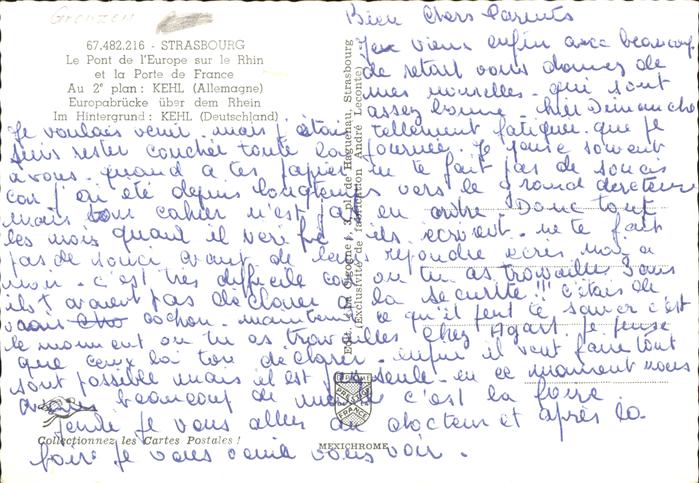 Grenzen
67.482.216 - STRASBOURG
Le Pont de l'Europe sur le Rhin
et la Porte de France
Au 2e plan : KEHL (Allemagne)
Europabrücke über dem Rhein
Im Hintergrund : KEHL (Deutschland)
Edit. "La Cigogne", 3, pl. de Haguenau, Strasbourg
(Exclusivité de fabrication André Leconte)
Bien chers Parents
Je vien enfin avec beaucoup
de retait vous donnez de
mes nouvelles. qui sont
assez bonne. hier Dimanche
Je voulais venir. mais j'étais tellement fatiguee. que je
suis rester couchée toute la journée. Je pense souvent
a vous. quand a tes papiers ne te fait pas de soucis
car j'en été depuis longtemps vers le grand derecteur
mais ton cahier n'est pas en ordre. Donc tout
les mois quand il verifie ils ecrivent. ne te fait
pas de souci avant de leurs repondre ecris moi a
moi. c'est tres difficile car ou tu as travailler sans
ils t'avaient pas déclarer a la sécurité !!! c'étais de
cochon. maintenant ce qu'il peut te sauver c'est
le moment ou tu as travailles chez Agart. je pense
que ceux lai ton déclarer. enfin il vont faire tout
sont possible mais il est pas seule. en ce moment nous
avons beaucoup de c'est la foire.
Jendé je vous alles au docteur et après la
foire je vous venir vous voir.
Collectionnez les Cartes Postales !
FRANCE
MEXICHROME